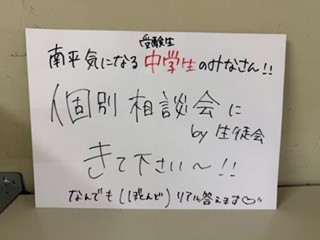 受験生
南平気になる中学生のみなさん!!
個別相談会に
by 生徒会
きて下さい〜!!
なんでも(ほとんど)リアル答えます♡